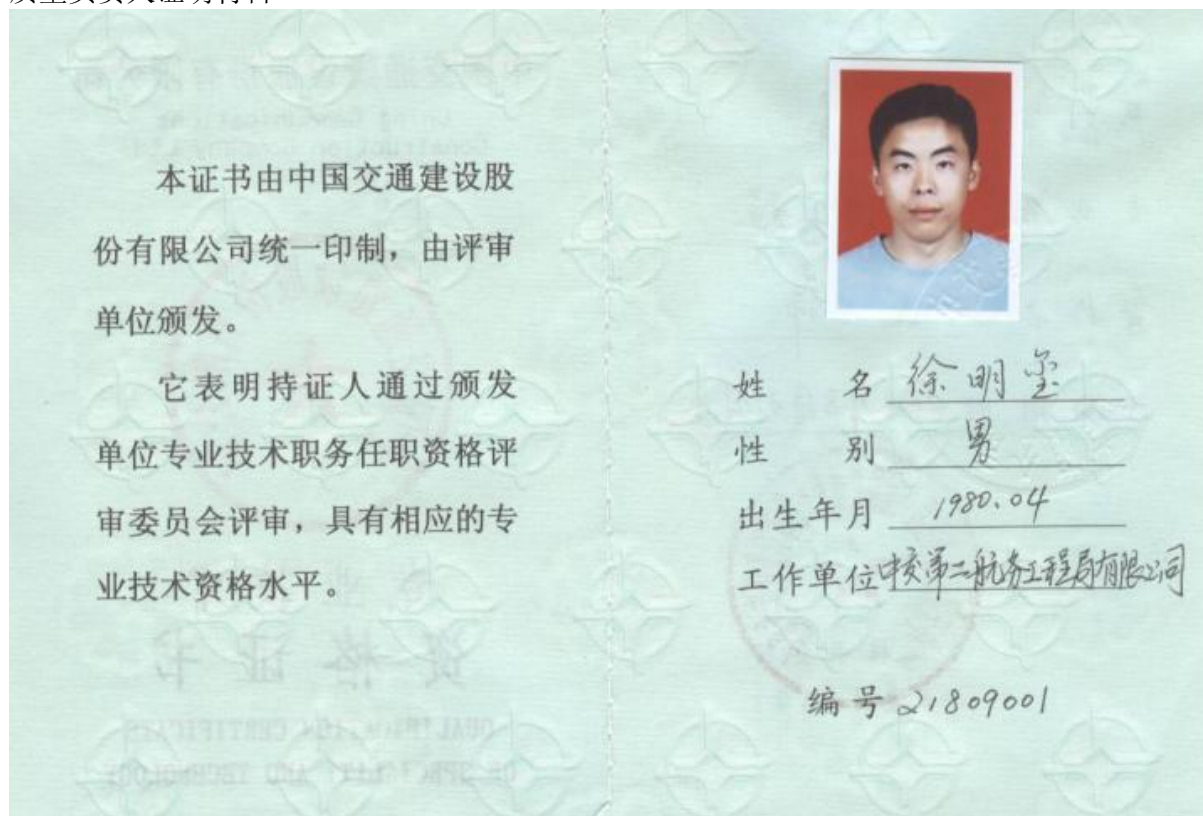 本证书由中国交通建设股
份有限公司统一印制，由评审
单位颁发。
它表明持证人通过颁发
单位专业技术职务任职资格评
审委员会评审，具有相应的专
业技术资格水平。
姓 名 徐明玺
性 别 男
出生年月 1980.04
工作单位 中交第二航务工程局有限公司
编号 21809001